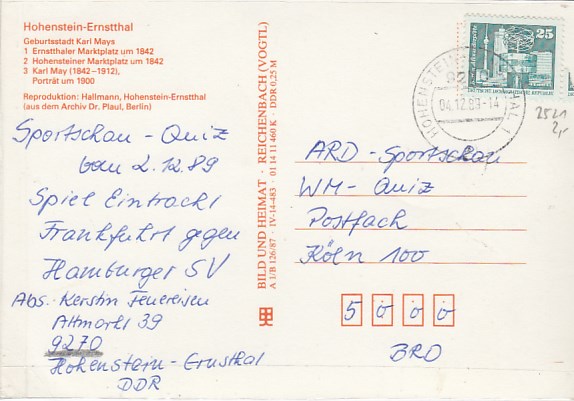 Hohenstein-Ernstthal
Geburtsstadt Karl Mays
1 Ernstthaler Marktplatz um 1842
2 Hohensteiner Marktplatz um 1842
3 Karl May (1842–1912),
Porträt um 1900
Reproduktion: Hallmann, Hohenstein-Ernstthal
(aus dem Archiv Dr. Plaul, Berlin)
Sportschau - Quiz
vom 2.12.89
Spiel Eintracht
Frankfurt gegen
Hamburger SV
Abs. Kerstin Feuereisen
Altmarkt 39
9270
Hohenstein-Ernstthal
DDR
BILD UND HEIMAT · REICHENBACH (VOGTL)
A 1/B 126/87 · IV-14-483 · 01 14 11 460 K · DDR 0,25 M
25
04.12.89-14
2521
2,-
ARD-Sportschau
WM-Quiz
Postfach
Köln 100
5000
BRD